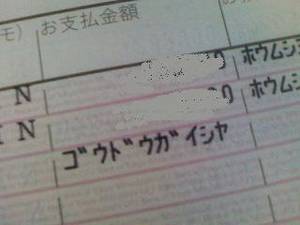 モ) お支払金額
0 ホウムシ
N
0 ホウム
N
ゴウドウガイシヤ